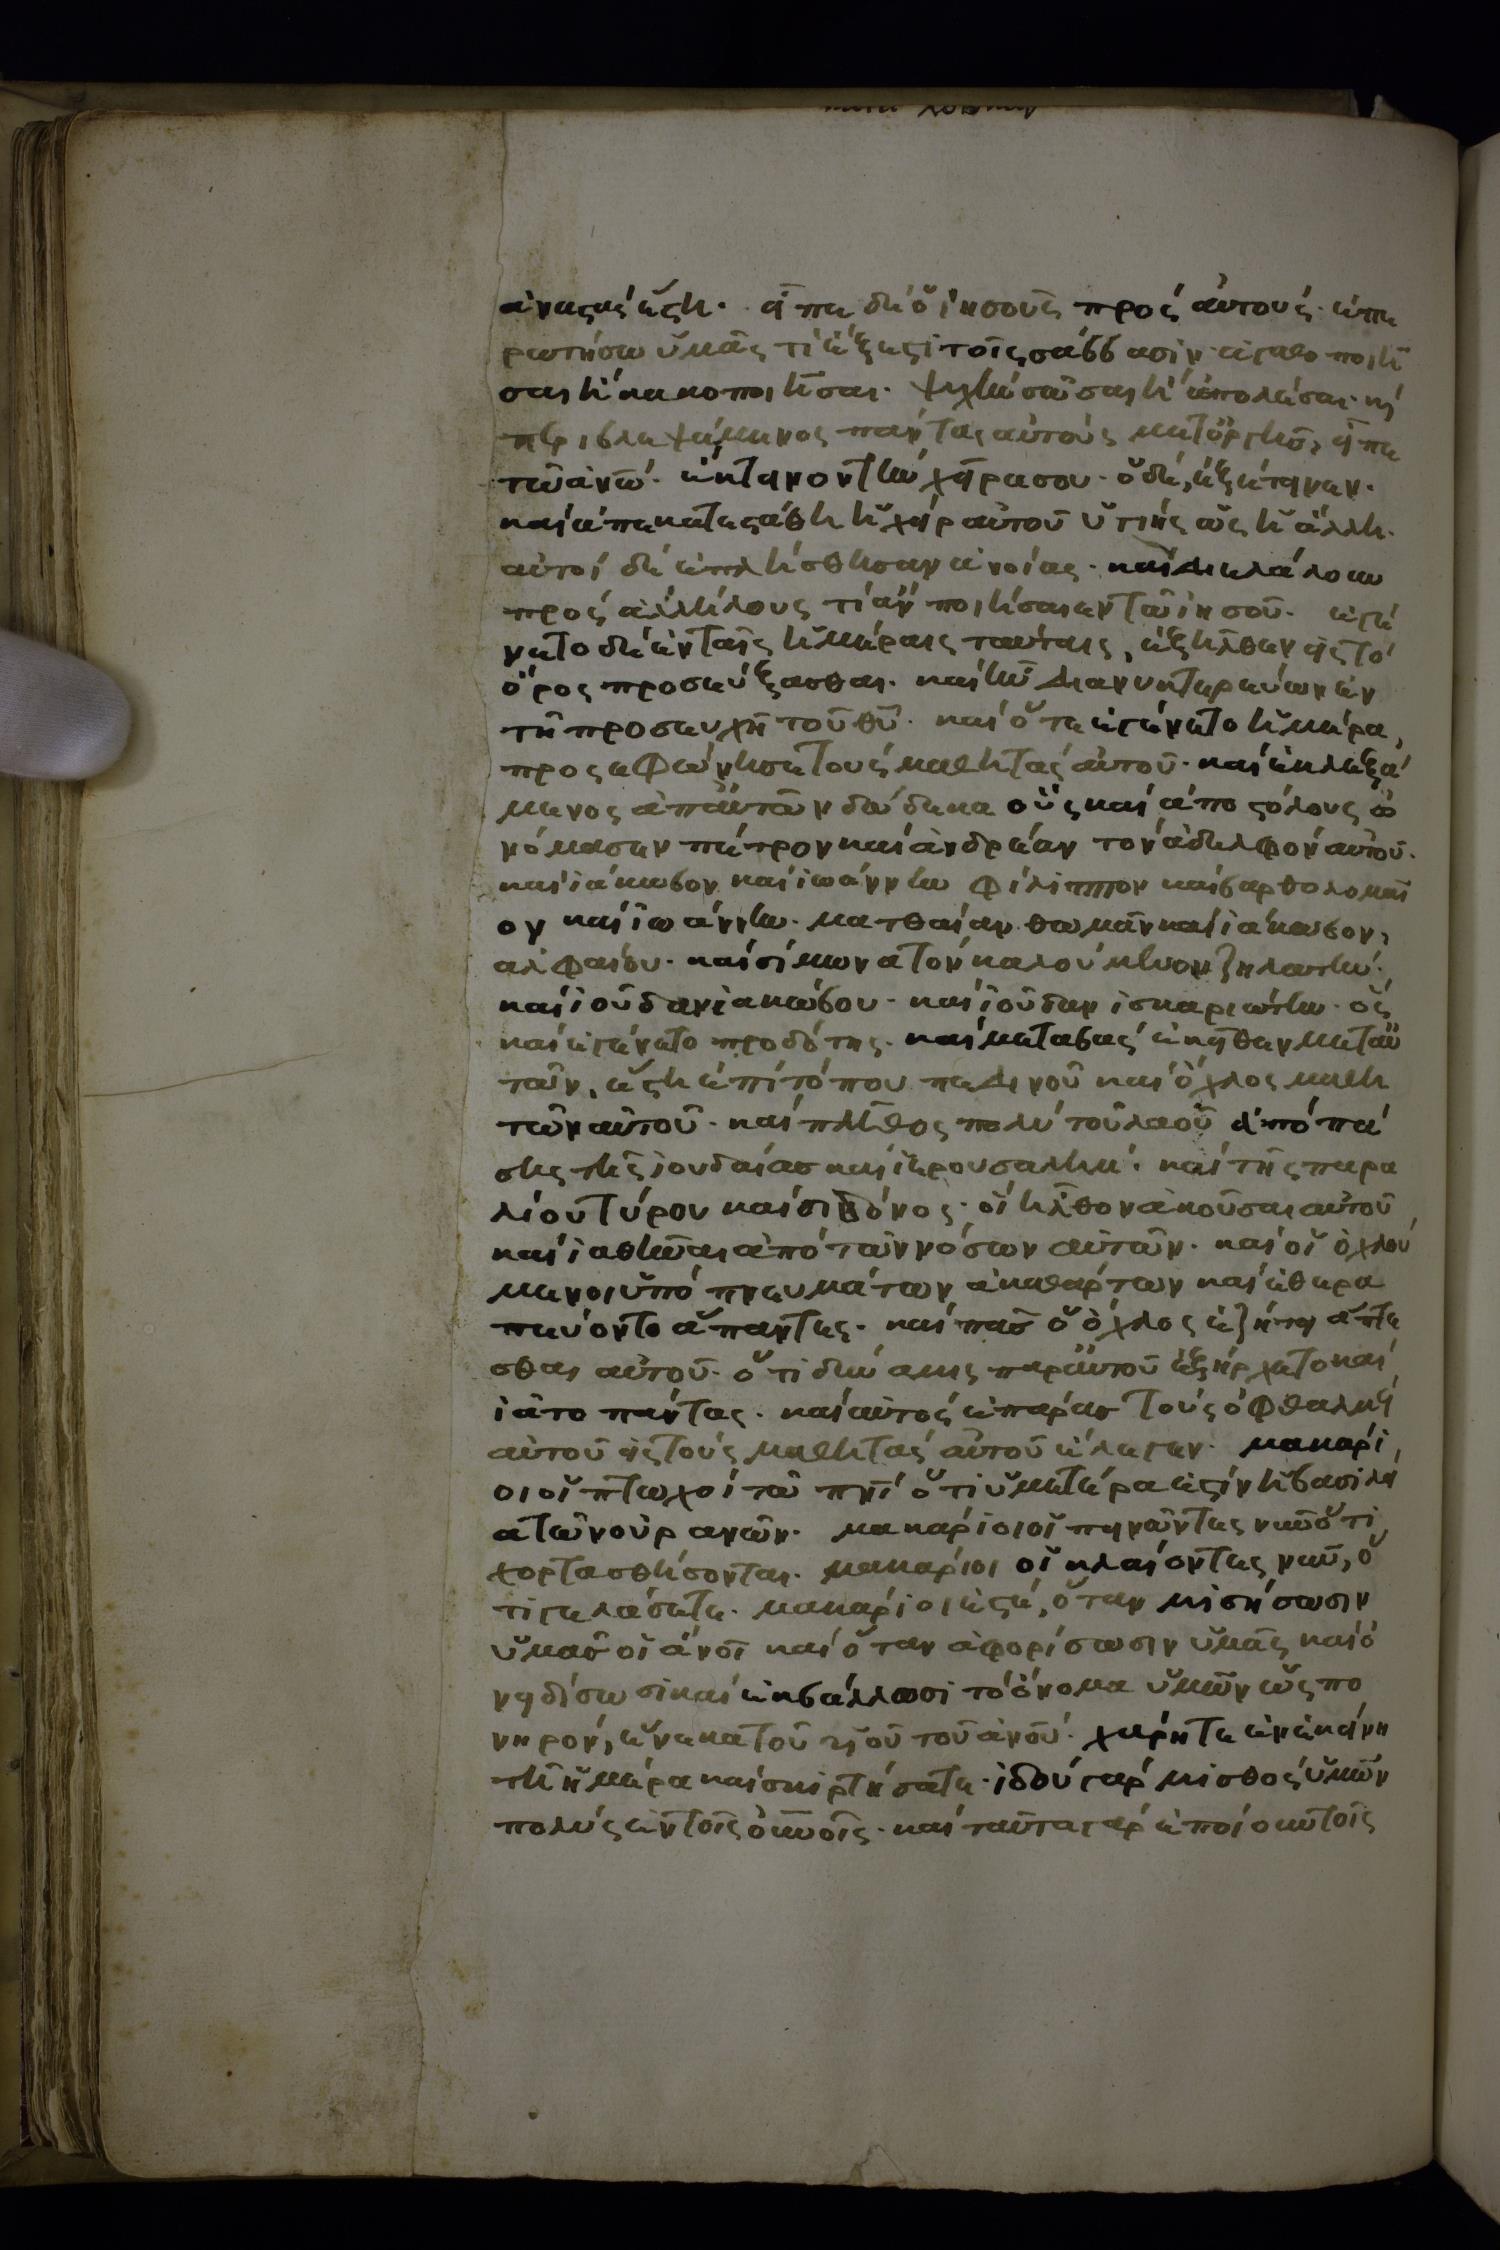 ἀναστὰς ἔστη. εἶπε δὲ ὁ ἰησοῦς πρὸς αὐτούς. ἐπε
ρωτήσω ὑμᾶς τί ἔξεστι τοῖς σάββασιν ἀγαθοποιῆ
σαι ἢ κακοποιῆσαι. ψυχὴν σῶσαι ἢ ἀπολέσαι. κὶ
περιβλεψάμενος πάντας αὐτοὺς μετ ὀργῆς, εἶπε
τῶ ἀνῶ. ἔκτεινον τὴν χεῖρα σου. ὁ δὲ, ἐξέτεινεν.
καὶ ἀπεκατεστάθη ἡ χεὶρ αὐτοῦ ὑγιὴς ὡς ἡ ἄλλη.
αὐτοὶ δὲ ἐπλήσθησαν ἀνοίας. καὶ διελάλουν
πρὸς ἀλλήλους τί ἂν ποιήσαιεν τῶ ἰησοῦ. ἐγέ
νετο δὲ ἐν ταῖς ἡμέραις ταύταις, ἐξῆλθεν εἰς τὸ
ὄρος προσεύξασθαι. καὶ ἦν διανυκτερεύων ἐν
τῆ προσευχῆ τοῦ θῦ. καὶ ὅτε ἐγένετο ἡμέρα,
προσεφώνησε τοὺς μαθητὰς αὐτοῦ. καὶ ἐκλεξά
μενος ἀπ αὐτῶν δώδεκα οὓς καὶ ἀποστόλους ὠ
νόμασεν πέτρον καὶ ἀνδρέαν τὸν ἀδελφὸν αὐτοῦ.
καὶ ἰάκωβον καὶ ἰωάννην φίλιππον καὶ βαρθολομαῖ
ον καὶ ἰωάννην. ματθαίαν θωμᾶν καὶ ἰάκωβον,
ἀλφαίου. καὶ σίμωνα τὸν καλούμενον ζηλωτήν.
καὶ ἰοῦδαν ἰακώβου. καὶ ἰοῦδαν ἰσκαριώτην. ὃς
καὶ ἐγένετο προδότης. καὶ μεταβὰς ἐκεῖθεν μετ αὐ
τῶν, ἔστη ἐπὶ τόπου πεδινοῦ καὶ ὄχλος μαθη
τῶν αὐτοῦ. καὶ πλῆθος πολὺ τοῦ λαοῦ ἀπὸ πά
σης τῆς ἰουδαίας καὶ ἱερουσαλήμ. καὶ τῆς παρα
λίου τύρου καὶ σιδόνος. οἳ ἦλθον ἀκοῦσαι αὐτοῦ
καὶ ἰαθῆναι ἀπὸ τῶν νόσων αὐτῶν. καὶ οἱ ὀχλού
μενοι ὑπὸ πνευμάτων ἀκαθάρτων καὶ ἐθερα
πεύοντο ἅπαντες. καὶ πᾶς ὁ ὄχλος ἐζήτει ἅπτε
σθαι αὐτοῦ. ὅτι δύναμις παρ αὐτοῦ ἐξήρχετο καὶ
ἰᾶτο πάντας. καὶ αὐτὸς ἐπάρας τοὺς ὀφθαλμοὺς
αὐτοῦ εἰς τοὺς μαθητὰς αὐτοῦ ἔλεγεν. μακάρι
οι οἱ πτωχοὶ τῶ πνί ὅτι ὑμετέρα ἐστὶν ἡ βασιλεί
α τῶν οὐρανῶν. μακάριοι οἱ πεινῶντες νῦν ὅτι
χορτασθήσονται. μακάριοι οἱ κλαίοντες νῦν, ὅ
τι γελάσετε. μακάριοι ἐστέ, ὅταν μισήσωσιν
ὑμᾶς οἱ ἄνοι καὶ ὅταν ἀφορίσωσιν ὑμᾶς καὶ ὀ
νειδίσωσι καὶ ἐκβάλλωσι τὸ ὄνομα ὑμῶν ὡς πο
νηρόν, ἕνεκα τοῦ υἱοῦ τοῦ ἀνοῦ. χάρητε ἐν ἐκείνη
τῆ ἡμέρα καὶ σκιρτήσατε. ἰδοὺ γὰρ μισθὸς ὑμῶν
πολὺς ἐν τοῖς οὐνοῖς. καὶ ταῦτα γὰρ ἐποίουν τοῖς